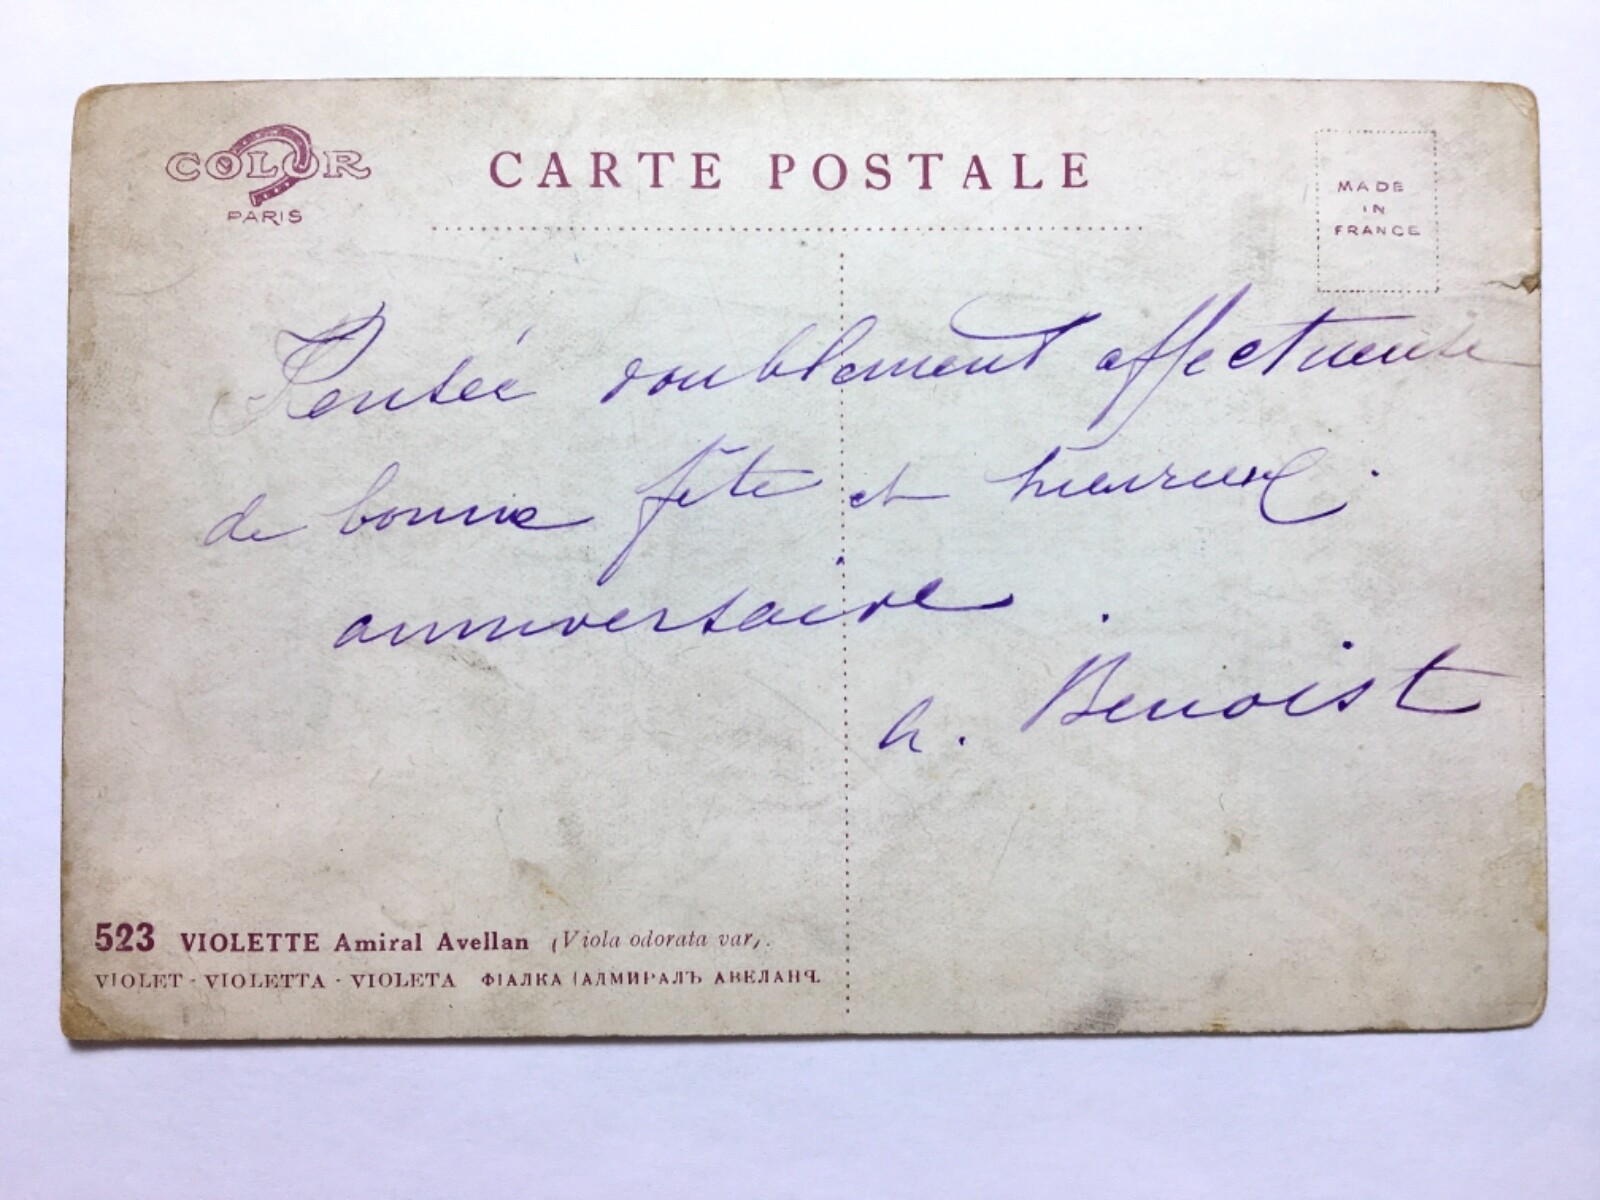 COLOR
PARIS
CARTE POSTALE
MADE
IN
FRANCE
Pensée doublement affectueuse
de bonne fête et heureux
anniversaire
a. Benoist
523 VIOLETTE Amiral Avellan (Viola odorata var).
VIOLET - VIOLETTA - VIOLETA ФІАЛКА (АДМИРАЛЪ АВЕЛАНЧ.